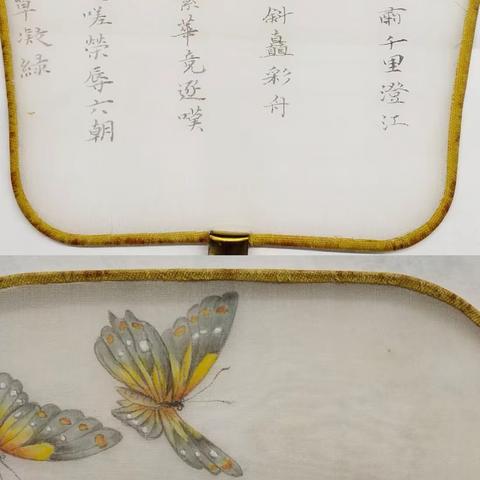 肅千里澄江
斜矗彩舟
繁華竞逐嘆
嗟榮辱六朝
草凝緑